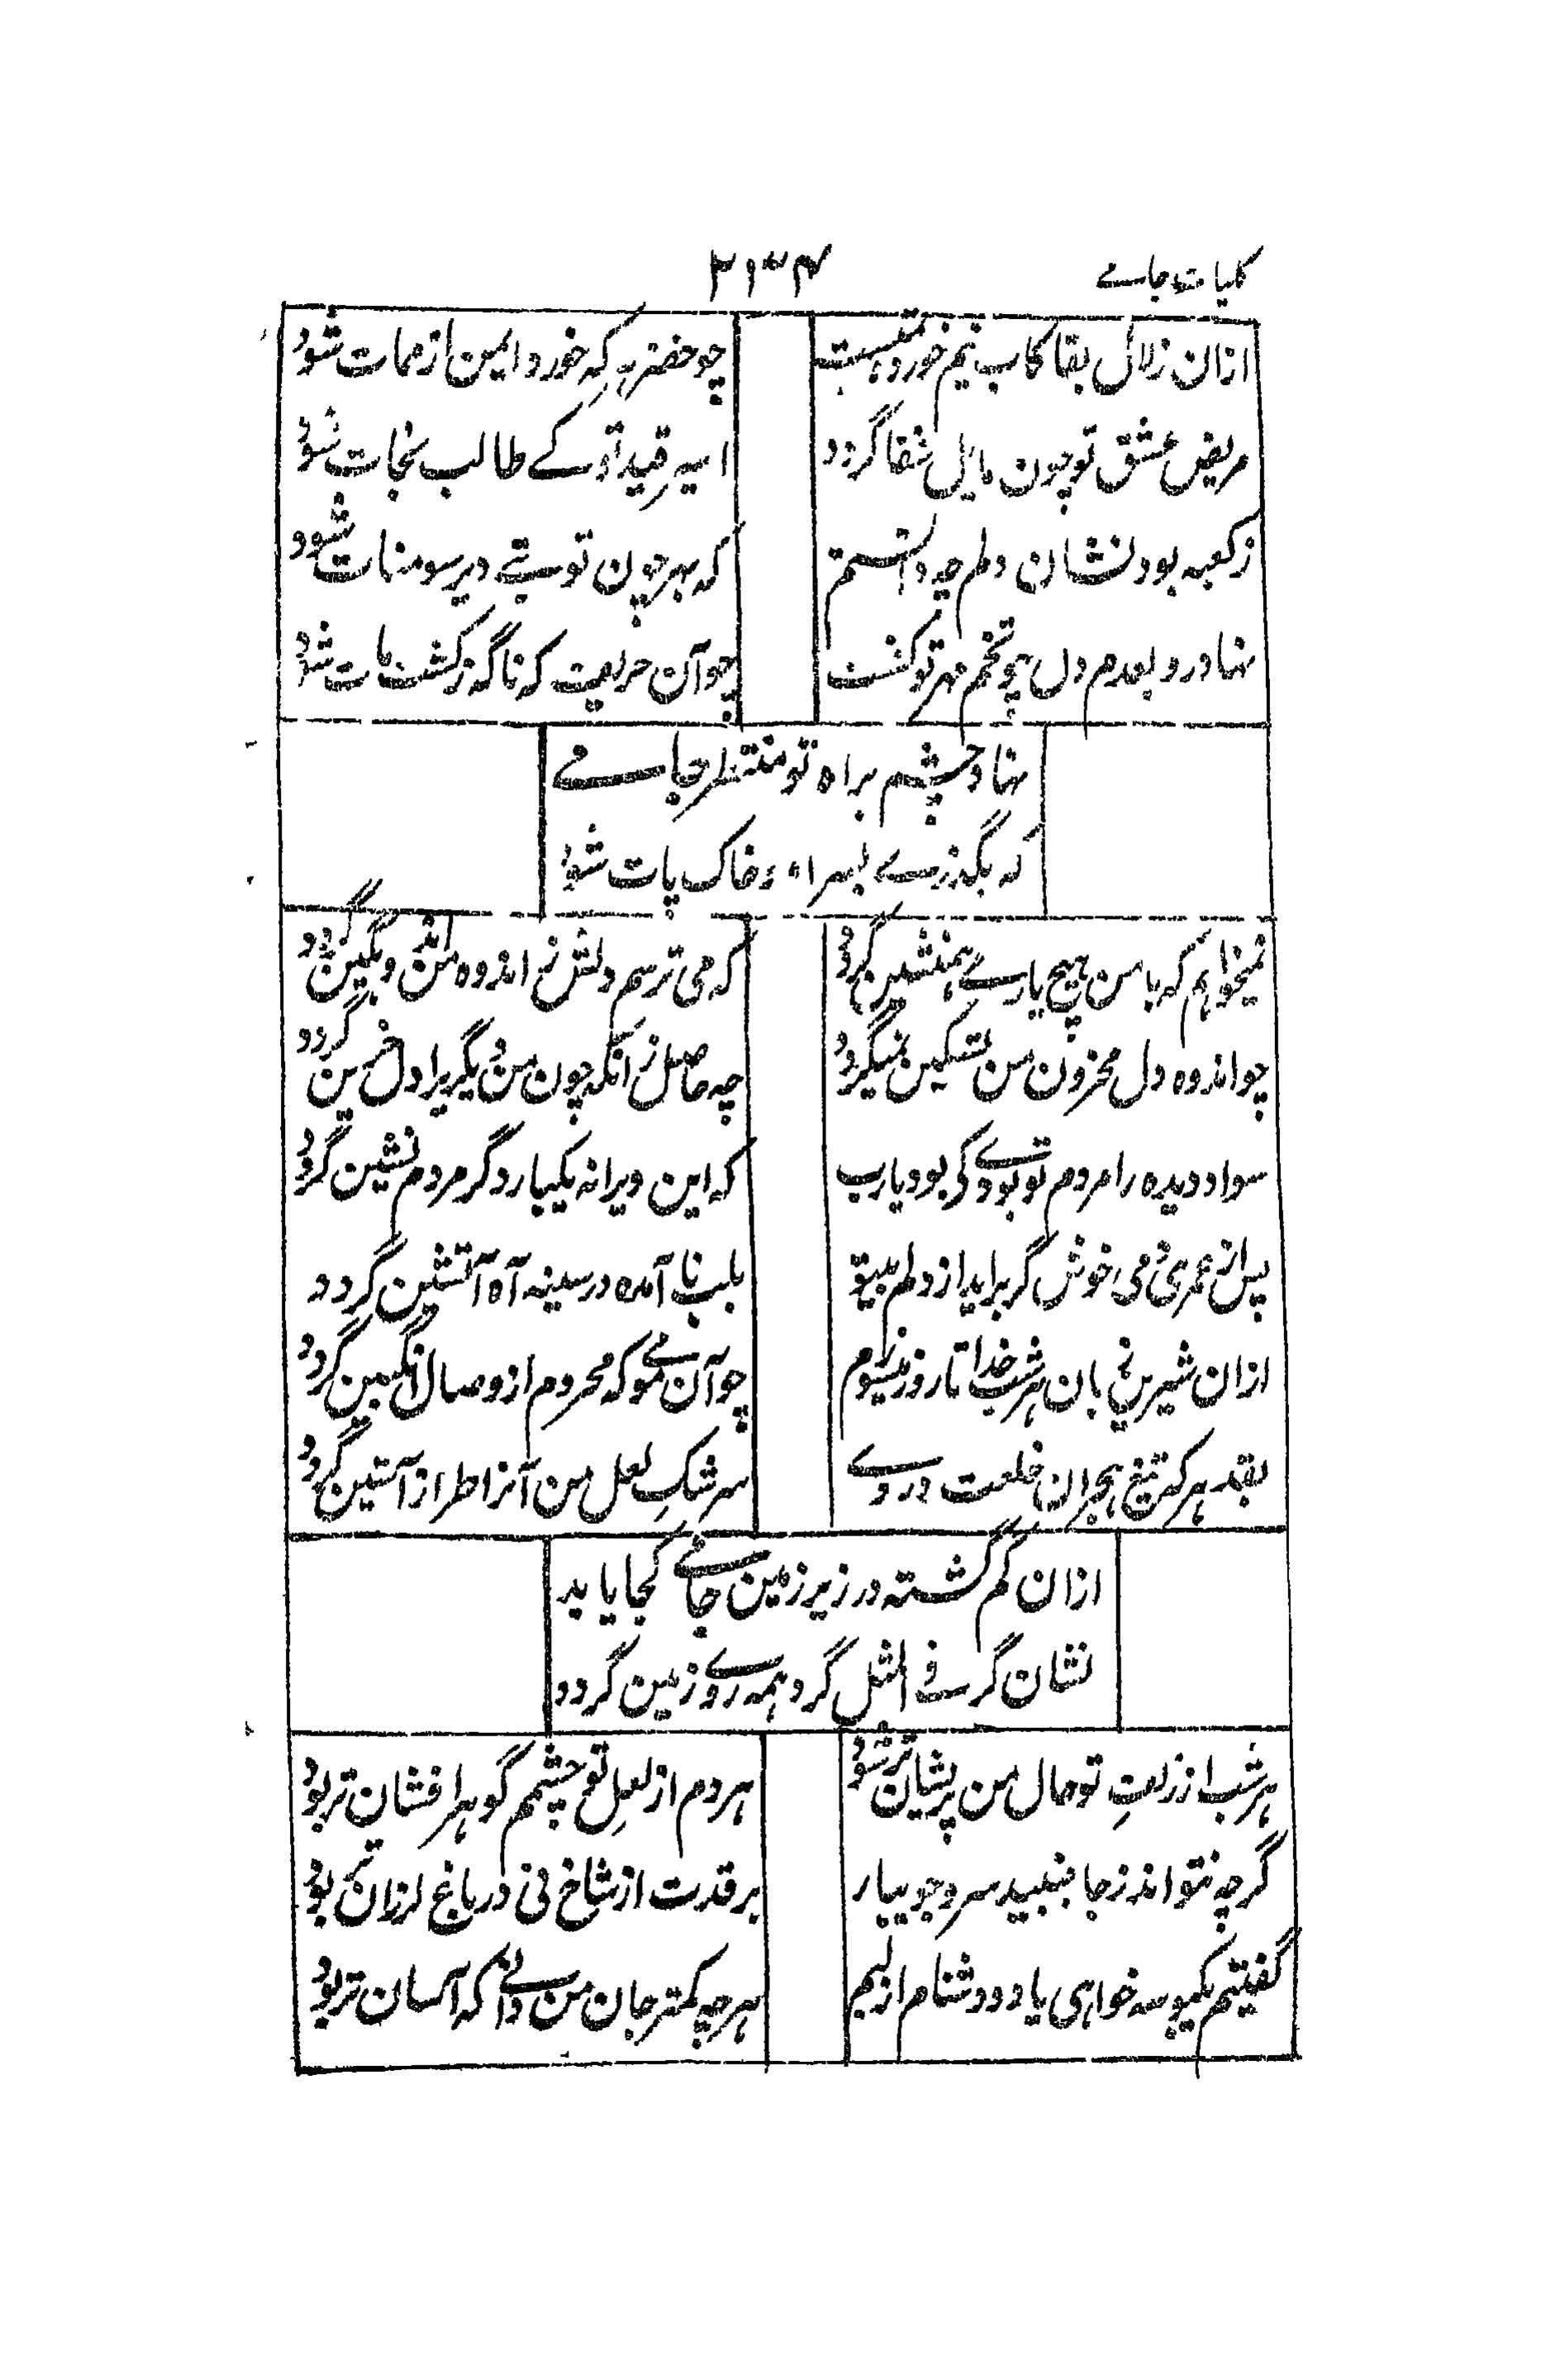 کلیات جامے
۲۱۳۴
ازان زلال بقا کاب نیم خورده تست
چو خضر ہر کہ خورد ایمن از ممات شود
مریض عشق تو چون مایل شفا گردد
اسیر قید تو کے طالب نجات شود
ز کعبہ بود نشان دلم چه دانستم
کہ بہر چون تو بتے دیر سومنات شود
نهاد رو بعدم دل چو تخم مهر تو کشت
چو آن حریف کہ ناگہ ز کشت مات شود
نهاد چشم براہ تو منتظر جامے
کہ بگذرے بسر او و خاک پات شود
نمیخواهم کہ با من ہیچ یارے ہمنشین گردد
کہ می ترسم دلش ز اندوہ من اندوہگین گردد
چو اندوہ دل محزون من تسکین نمیگیرد
چہ حاصل زانکہ چون من دیگریرا دل حزین گردد
سواد دیدہ را مردم تو بودے کی بود یارب
کہ این ویرانہ یکبار دگر مردم نشین گردد
پس از عمری دمی خوش گر براید از دلم بیتو
بلب نا آمدہ در سینہ آہ آتشین گردد
ازان شیرین زبان ہر شب جدا تا روز میسوزم
چو آن مومے کہ محروم از وصال انگبین گردد
بقد ہر کہ تیغ ہجران خلعت دردے
سرشک لعل من آنرا طراز آستین گردد
ازان گم گشتہ در زیر زمین جامے کجا یابد
نشان گر فے المثل گرد ہمہ روے زمین گردد
ہر شب از زلف تو حال من پریشان تر شود
ہر دم از لعل تو چشمم گوہر افشان تر بود
گرچہ نتواند ز جا جنبید سرو جویبار
بر قدت از شاخ نی در باغ لرزان تر بود
گفتیم یکبوسہ خواہی یا دو دشنام از لبم
ہر چہ کمتر جان من دانے کہ آسان تر بود